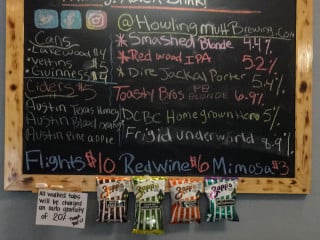 @HowlingMuttBrewing.com
Cans
Lakewood $4
Veltins $5
Guinness $
Ciders $5
Austin Texas Honey
Austin Blood Orange
Austin Pineapple
*Smashed Blonde 4.4%
*Redwood IPA 5.2%
*Dire Jackal Porter 5.4%
Toasty Bros PB BLONDE 6.9%
DCBC Homegrown Hero 5%
Frigid underworld 8.9%
Flights $10 Red Wine $6 Mimosa $3
All walked tabs
will be charged
an auto gratuity
of 20%
Zapp's Zapp's Zapp's Zapp's